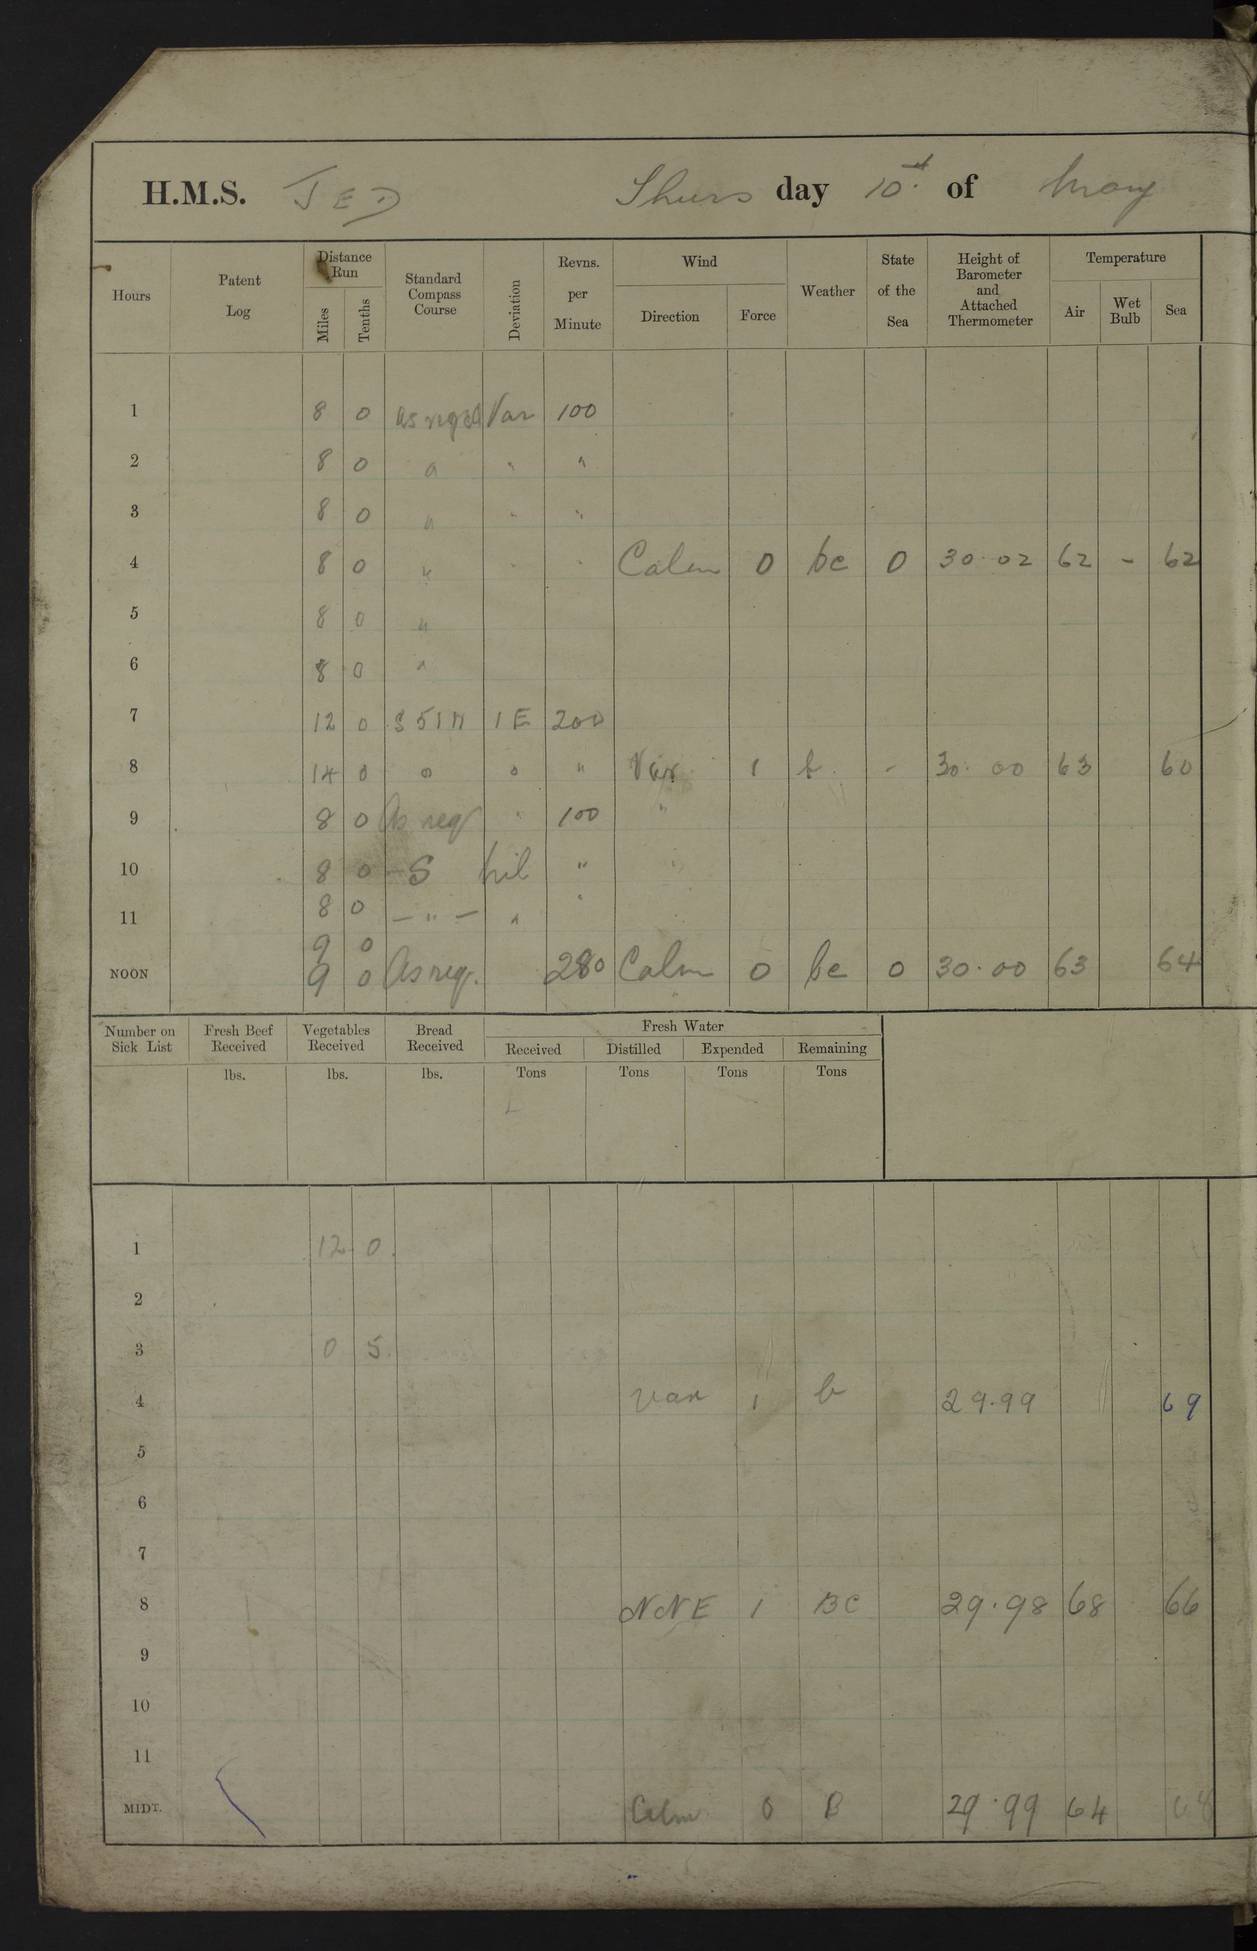 H.M.S. JED Thurs day 10th of May
Hours Patent Log Distance Run Miles Tenths Standard Compass Course Deviation Revns. per Minute Wind Direction Force Weather State of the Sea Height of Barometer and Attached Thermometer Temperature Air Wet Bulb Sea
1 8 0 as reqd Var 100
2 8 0 " " "
3 8 0 " " "
4 8 0 " " " Calm 0 bc 0 30.02 62 - 62
5 8 0 "
6 8 0 "
7 12 0 S 51 W 1 E 200
8 14 0 " " " Var 1 b - 30.00 63 60
9 8 0 As req " 100 "
10 8 0 S Nil " "
11 8 0 - " - " "
9 0
NOON 9 0 As req. 280 Calm 0 bc 0 30.00 63 64
Number on Sick List Fresh Beef Received Vegetables Received Bread Received Fresh Water
Received Distilled Expended Remaining
lbs. lbs. lbs. Tons Tons Tons Tons
1 12 0
2
3 0 5
4 Var 1 b 29.99 69
5
6
7
8 NNE 1 BC 29.98 68 66
9
10
11
MIDT. Calm 0 B 29.99 64